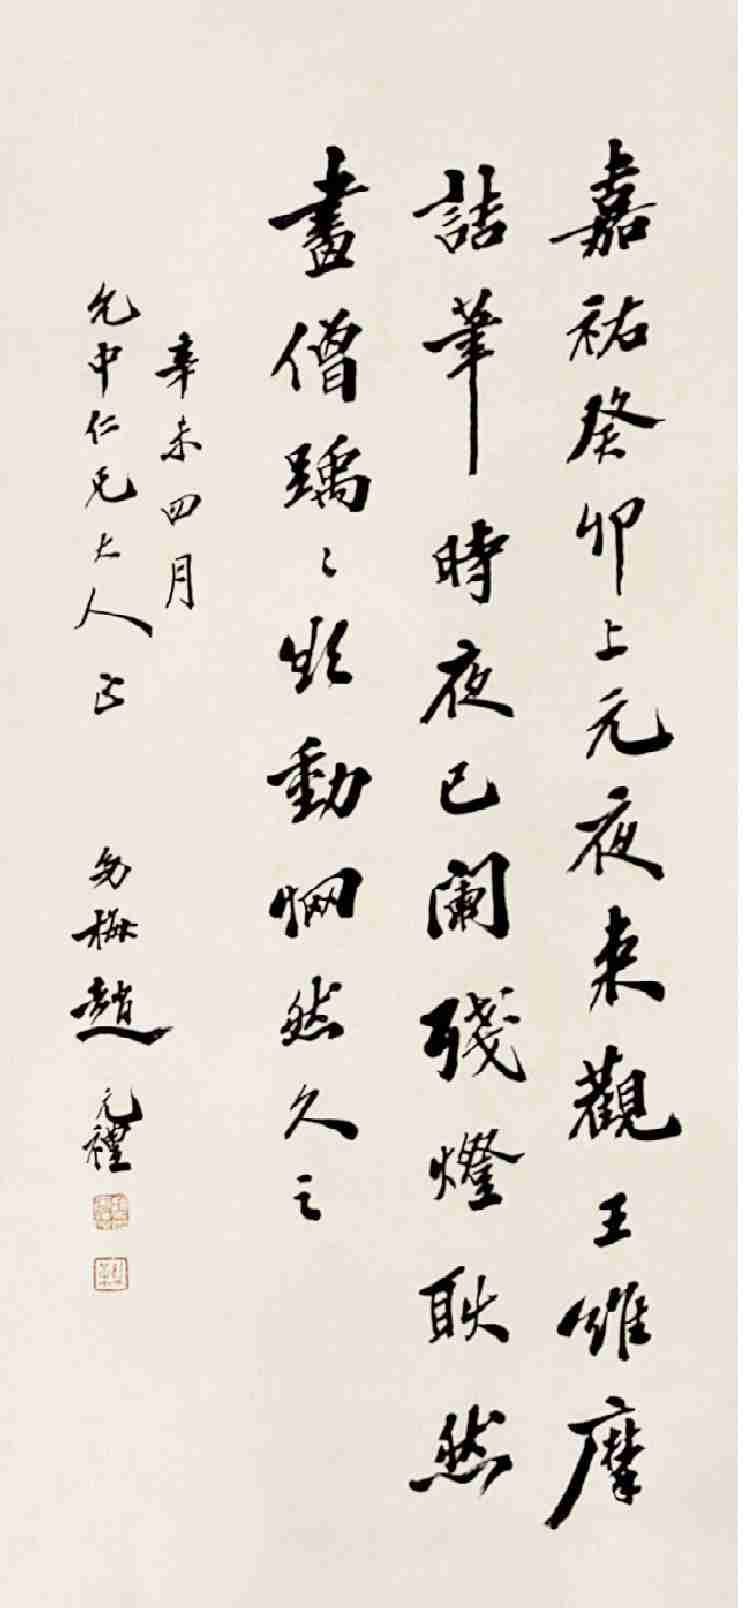 嘉祐癸卯上元夜来觀王維摩
詰筆時夜已闌殘燈耿然
畫僧踽〻欲動惘然久之
辛未四月
允中仁兄大人正
幼梅趙元禮